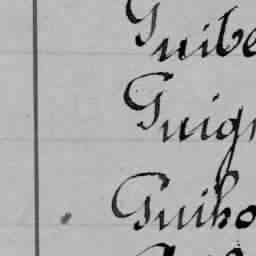 Guibe
Guign
Guiho